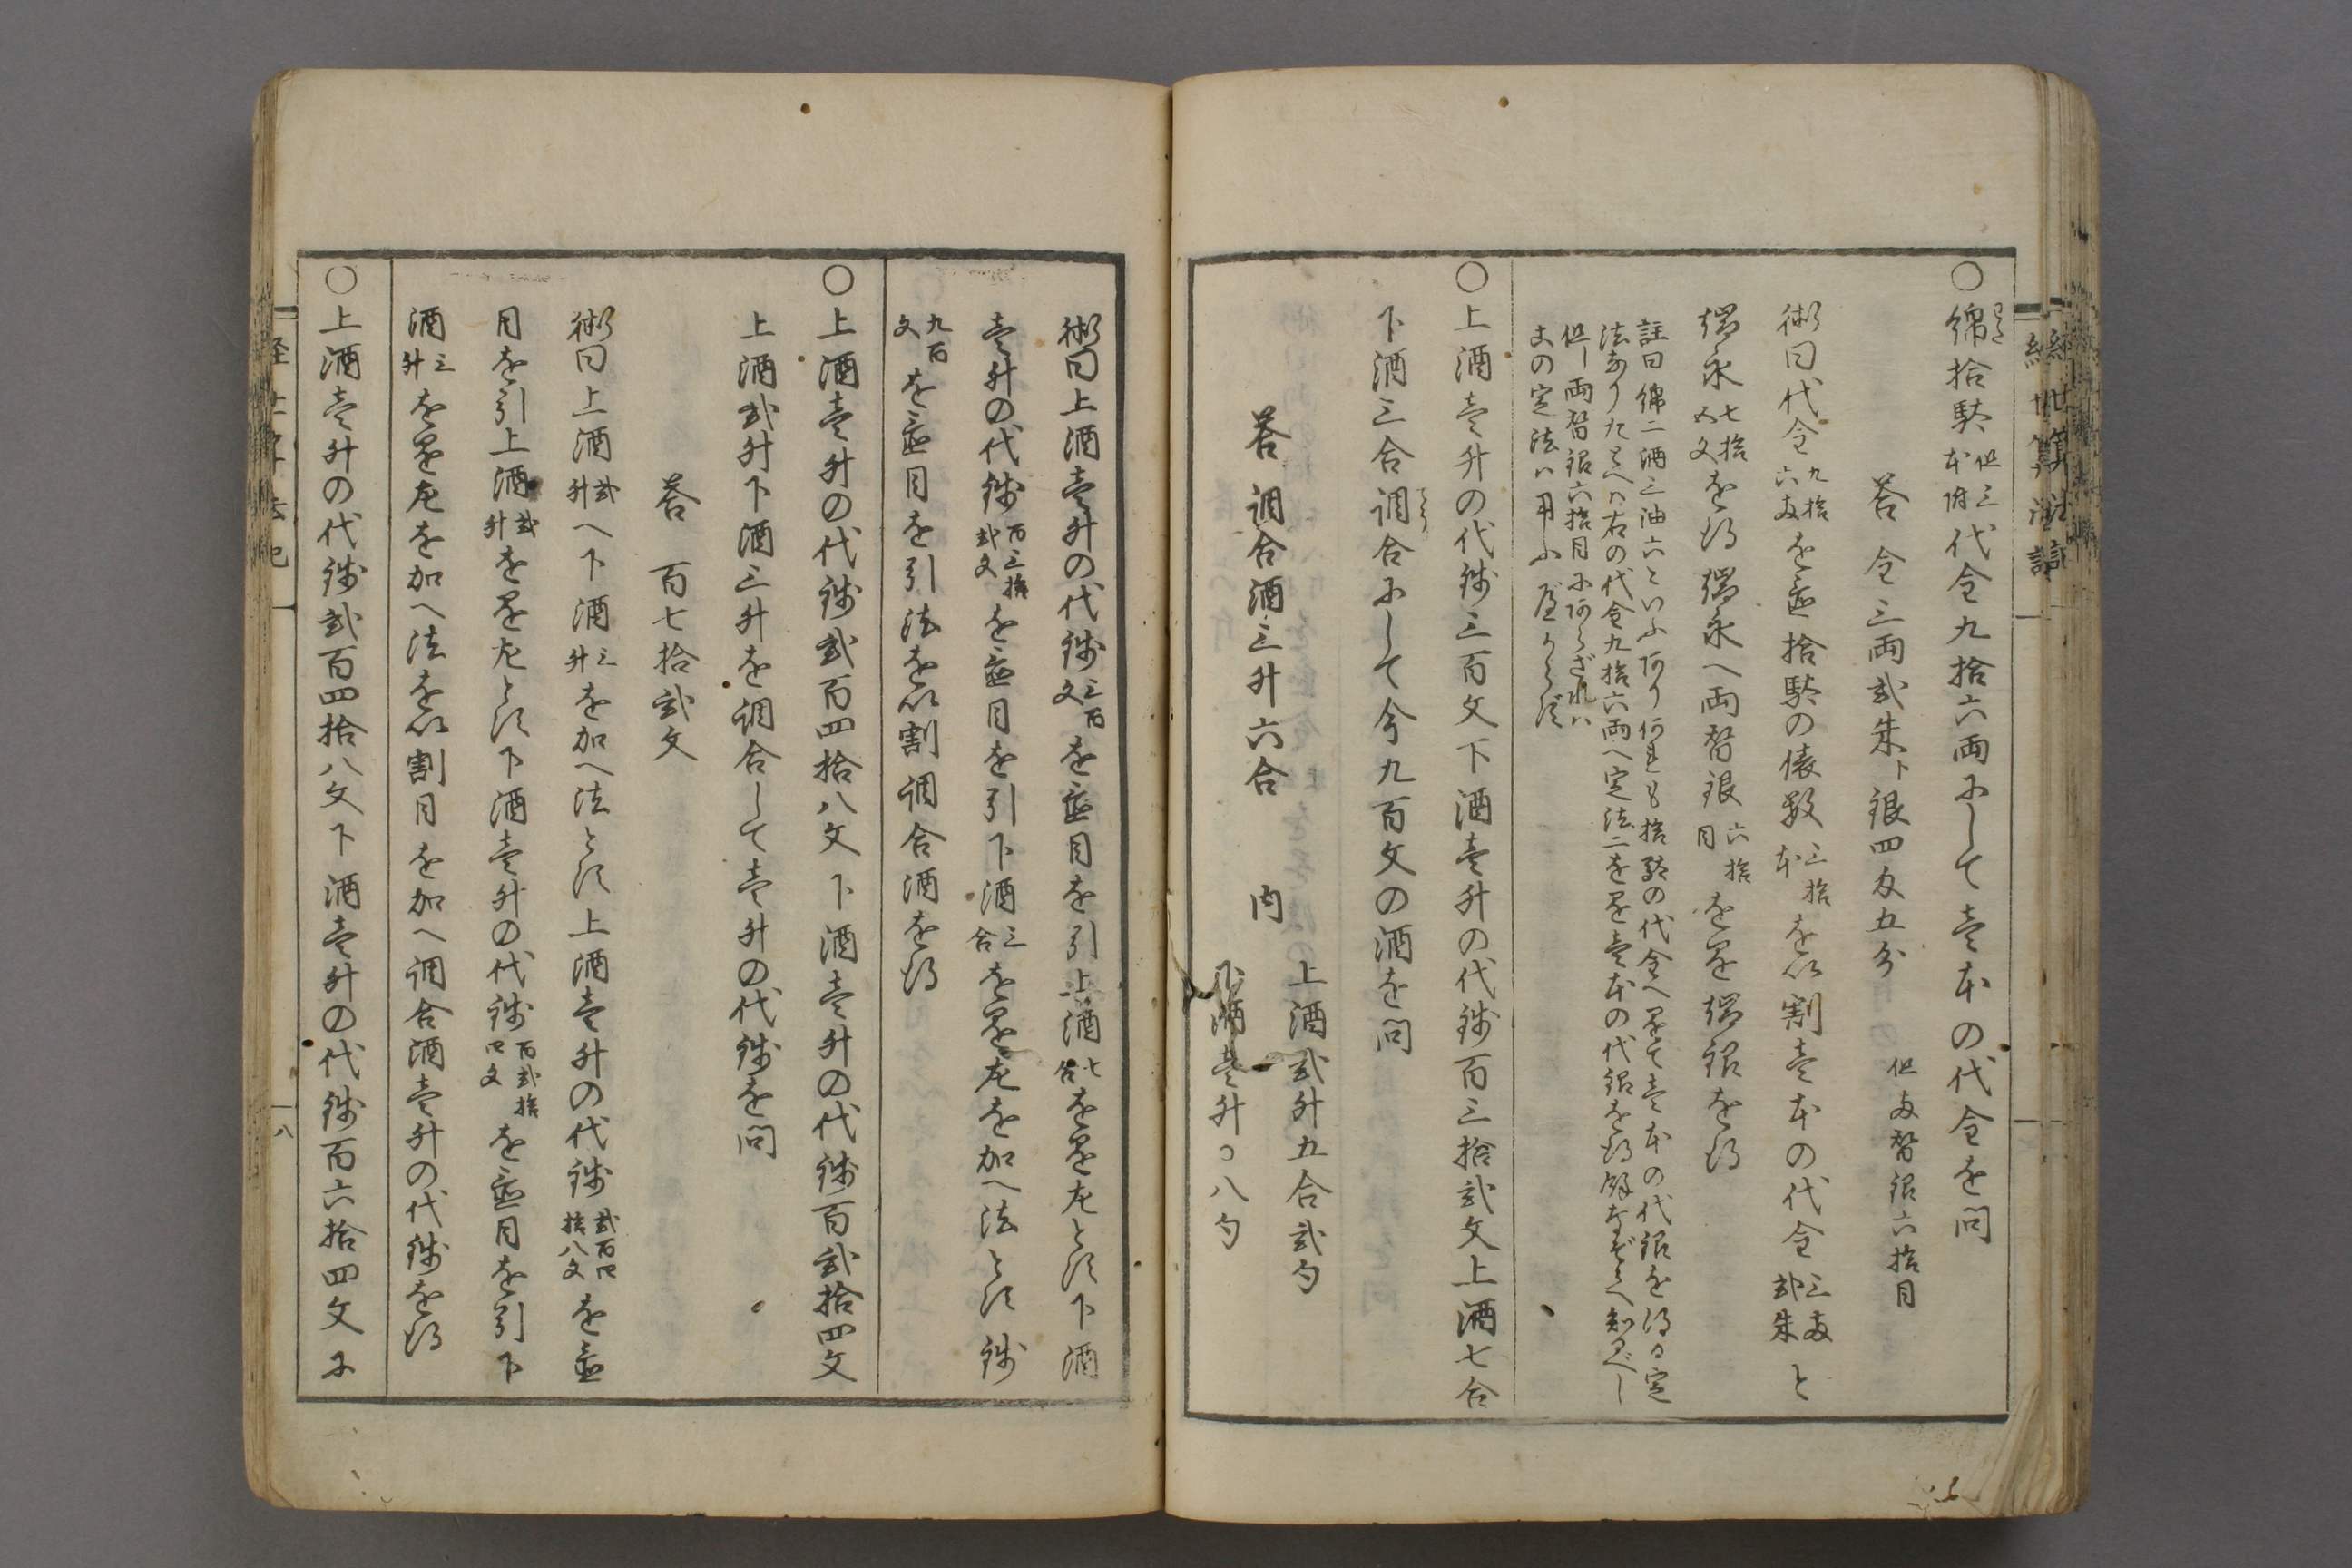 ○綿拾駄但三本附代金九拾六両にして壱本の代金を問
答 金三両弐朱ト銀四匁五分 但両替銀六拾目
術曰代金九拾六両を置拾駄の俵数三拾本を以割壱本の代金三両弐朱と
端永七拾五文を得端永へ両替銀六拾目を累端銀を得
註曰綿二酒三油六といふ何れも拾駄の代金へ累て壱本の代銀を得る定
法なりたとへハ右の代金九拾六両へ定法二を累壱本の代銀を得餘なぞらへ知るべし
但し両替銀六拾目にあらざれハ
この定法ハ用ふべからず
○上酒壱升の代銭三百文下酒壱升の代銭百三拾弐文上酒七合
下酒三合調合にして今九百文の酒を問
答 調合酒三升六合 内
上酒弐升五合弐勺
下酒壱升〇八勺
術曰上酒壱升の代銭三百文を置目を引上酒七合を累左とす下酒
壱升の代銭百三拾弐文を置目を引下酒三合を累左を加へ法とす銭
九百文を置目を引法を以割調合酒を得
○上酒壱升の代銭弐百四拾八文下酒壱升の代銭百弐拾四文
上酒弐升下酒三升を調合して壱升の代銭を問
答 百七拾弐文
術曰上酒弐升へ下酒三升を加へ法とす上酒壱升の代銭弐百四拾八文を置
目を引上酒弐升を累左とす下酒壱升の代銭百弐拾四文を置目を引下
酒三升を累左を加へ法を以割目を加へ調合酒壱升の代銭を得
○上酒壱升の代銭弐百四拾八文下酒壱升の代銭百六拾四文に
八